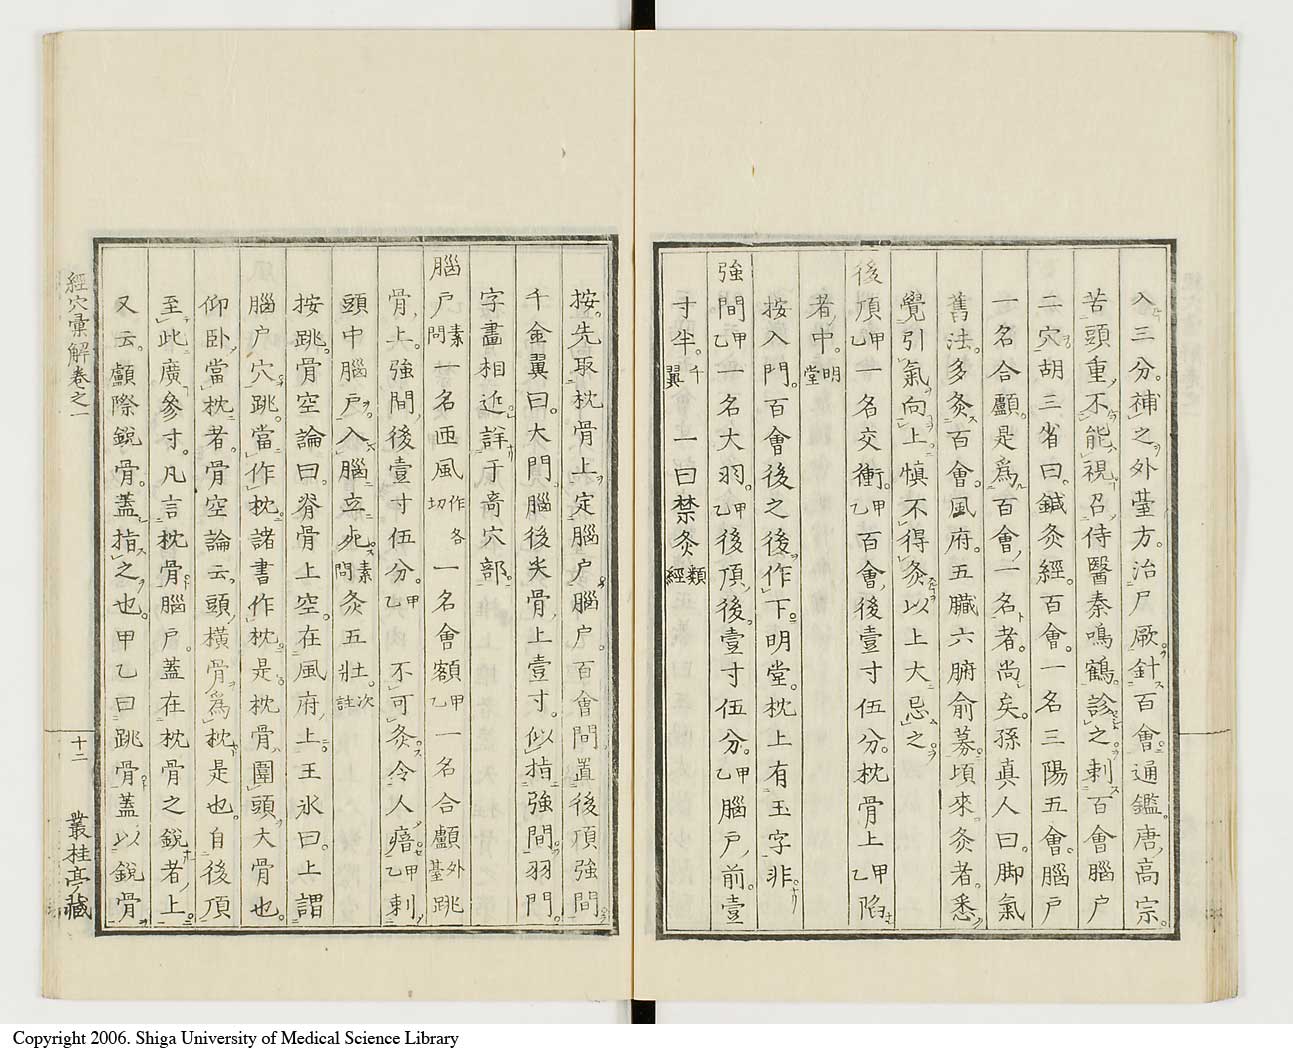 入三分。補之外臺方。治尸厥針百會。通鑑。唐高宗。
苦頭重。不能視。召侍醫秦鳴鶴。診之。刺百會腦户
二穴。胡三省曰。鍼灸經。百會。一名三陽五會。腦户
一名合顱。是爲百會一名者。尚矣。孫真人曰。脚氣
舊法。多灸百會。風府。五臟六腑俞募。頃來灸者。悉
覺引氣向上。愼不得灸以上大忌之。
後頂甲乙一名交衝。甲乙百會後壹寸伍分。枕骨上甲乙陷
者中。明堂
按入門。百會後之後作下。明堂。枕上有玉字非。
強間甲乙一名大羽。甲乙後頂後壹寸伍分。甲乙腦户前壹
寸半。千翼一曰禁灸類經
按。先取枕骨上。定腦户。腦户。百會間。置後頂強間。
千金翼曰。大門。腦後尖骨上壹寸。似指強間。羽門。
字畫相近。詳于奇穴部。
腦户素問一名匝風作各切一名會額甲乙一名合顱外臺跳
骨上。強間後壹寸伍分。甲乙不可灸令人瘖。甲乙刺
頭中腦户。入腦立死。素問灸五壯。次註
按跳。骨空論曰。脊骨上空。在風府上。王氷曰。上謂
腦户穴。跳。當作枕。諸書作枕。是枕骨圍頭大骨也。
仰卧當枕者。骨空論云。頭橫骨爲枕是也。自後頂
至此廣參寸。凡言枕骨腦户。蓋在枕骨之銳者上。
又云。顱際銳骨。蓋指之也。甲乙曰跳骨。蓋以銳骨
經穴彙解卷之一
十二
叢桂亭藏
Copyright 2006. Shiga University of Medical Science Library